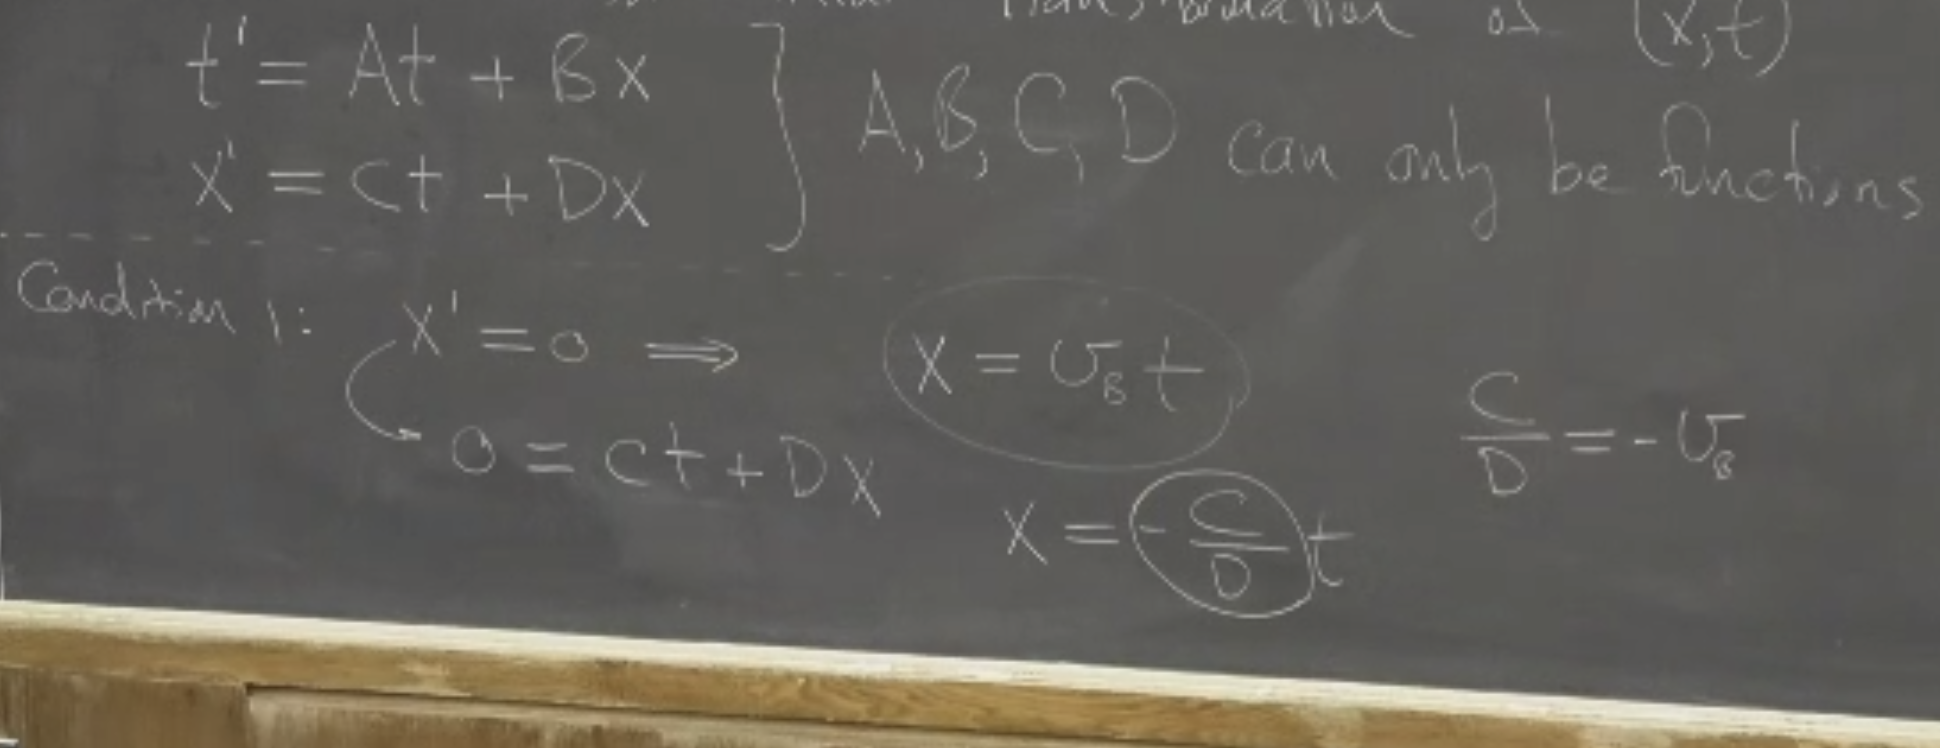 transformation of (x,t)
t' = At + Bx
x' = Ct + Dx
A, B, C, D can only be functions
Condition 1: x' = 0 ⟹ x = v_B t
0 = Ct + Dx
x = -C/D t
C/D = -v_B